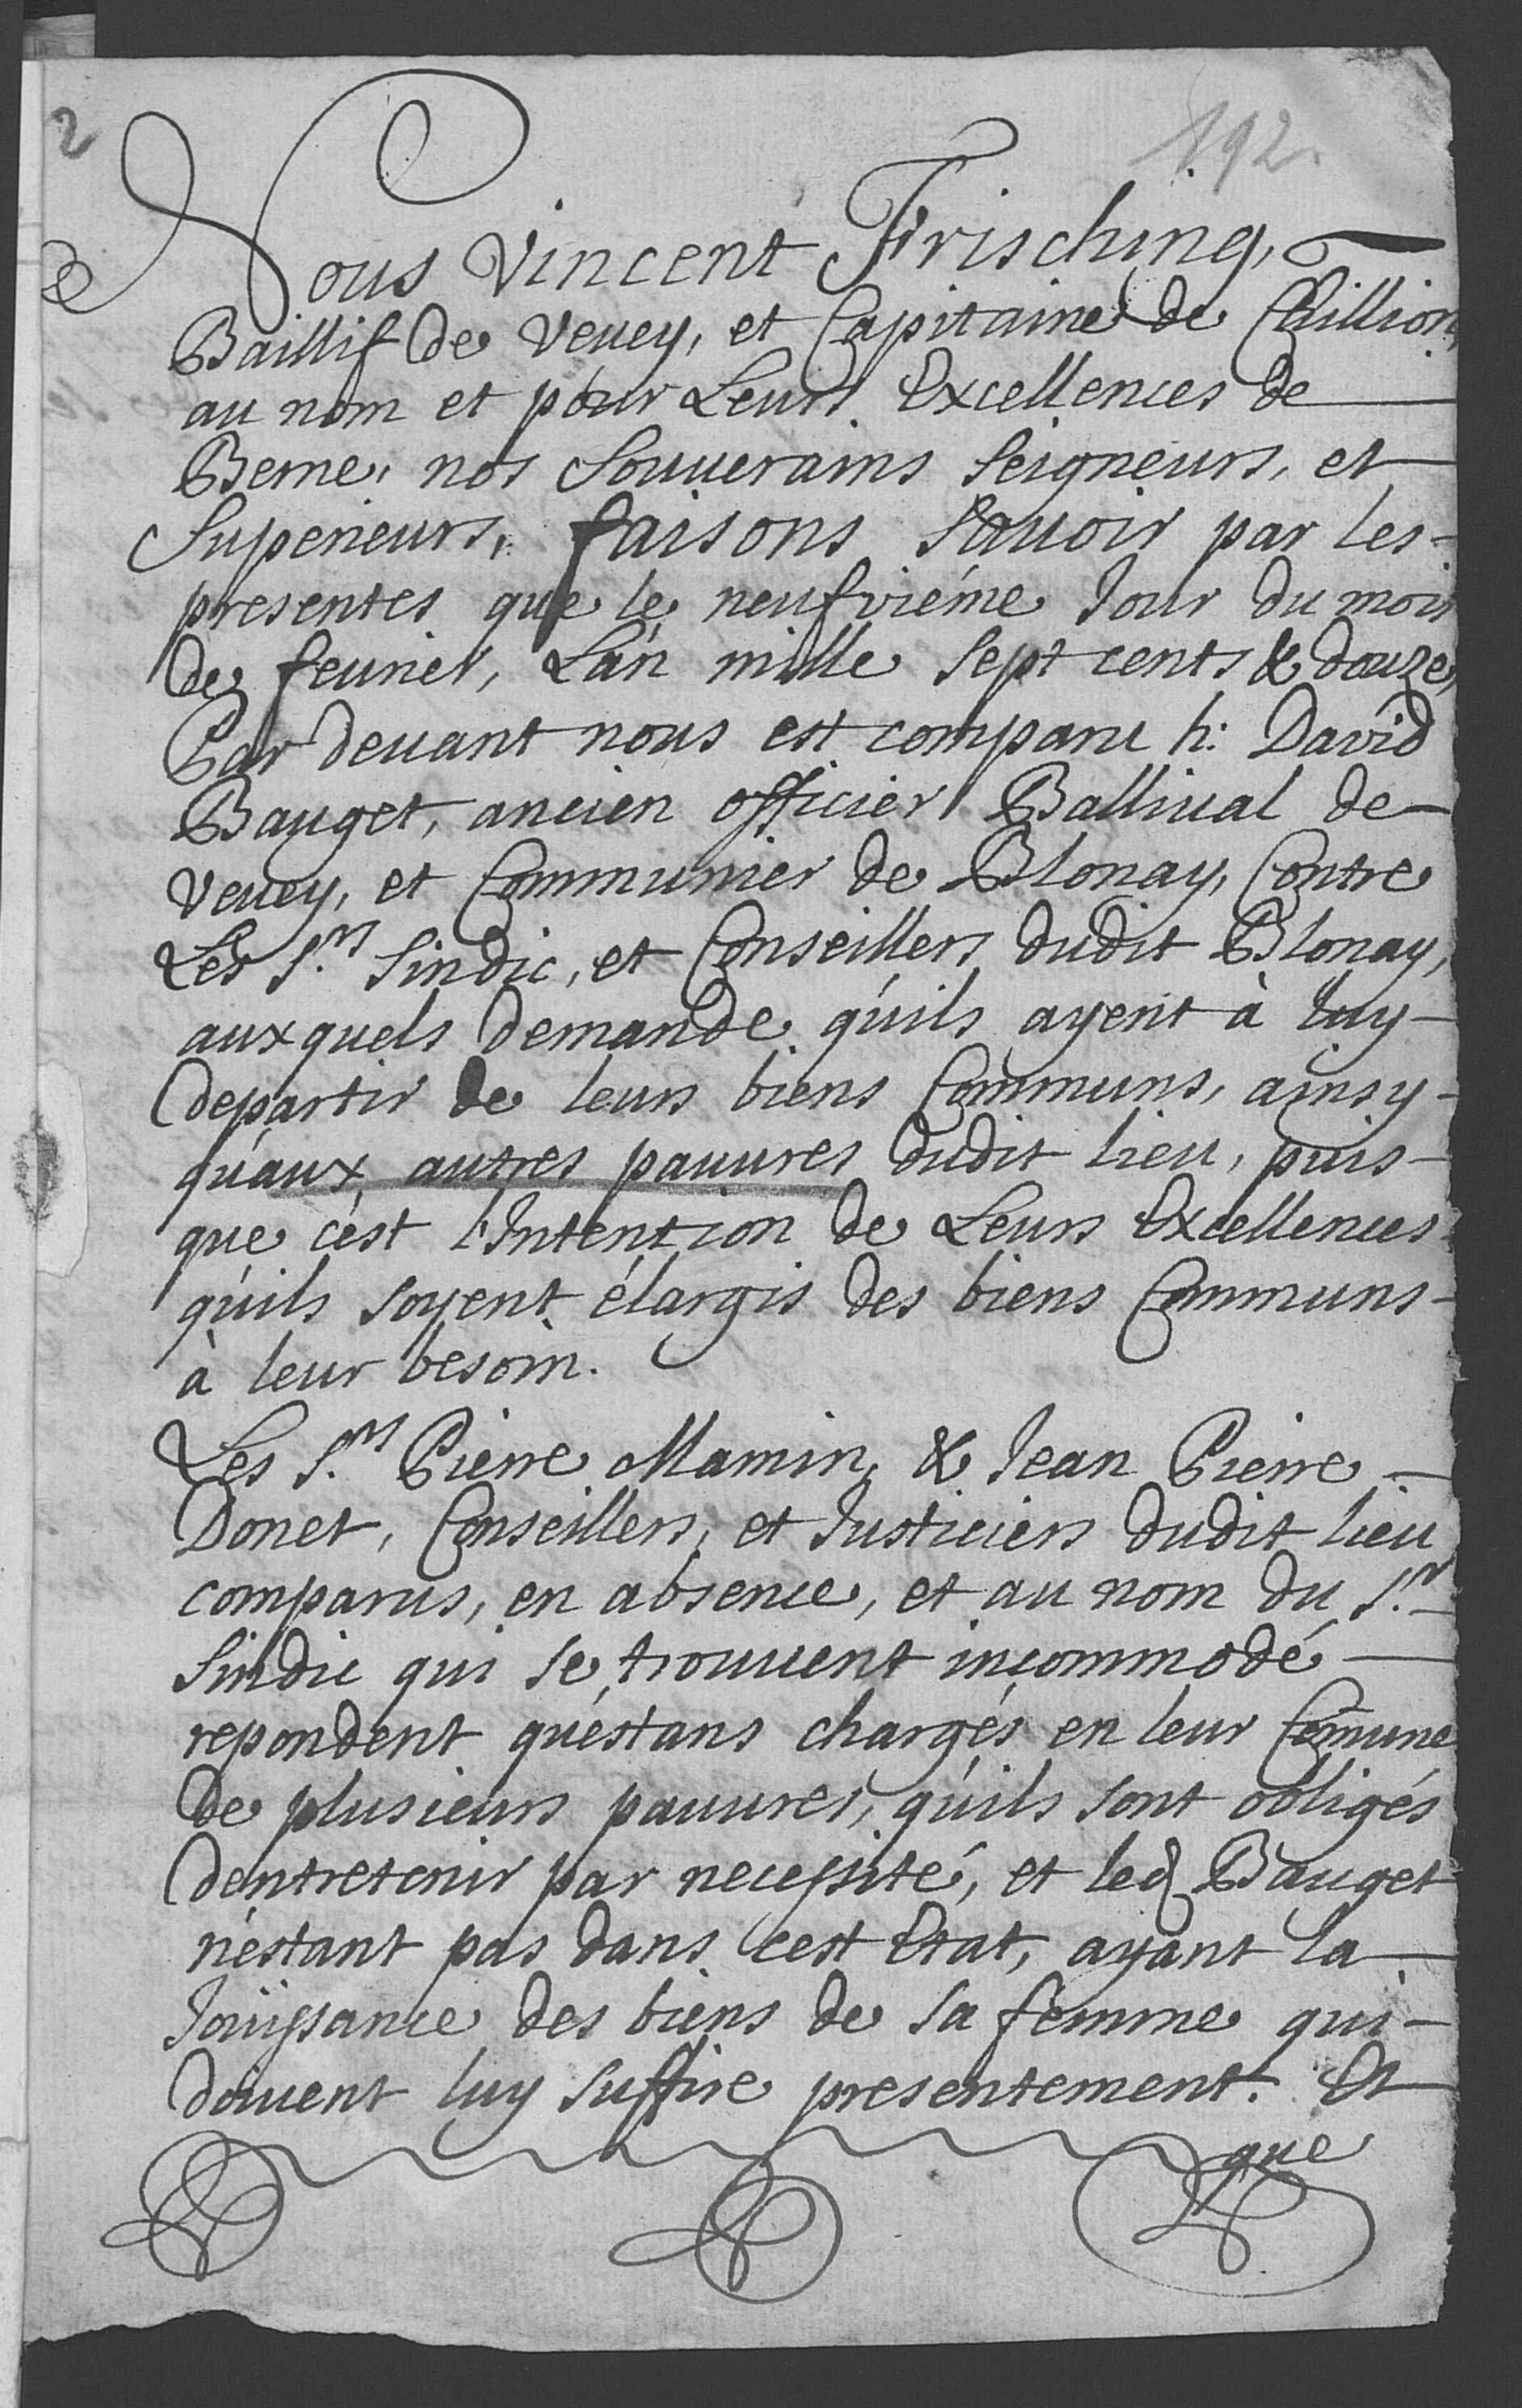 2
192.
Nous Vincent Frisching,
Baillif de Veuey, et Capitaine de Chillion,
au nom et pour Leurs Excellences de
Berne, nos Souuerains Seigneurs, et
Superieurs, faisons sauoir par les
presentes que le neufviéme Jour du mois
de feurier, L'an mille sept cents & douze,
Par deuant nous est comparu h: David
Bauget, ancien officier Balliual de
Veuey, et Communier de Blonay, Contre
Les S.rs Sindic, et Conseillers dudit Blonay,
auxquels demande qu'ils ayent à luy
departir de leurs biens Communs, ainsy
qu'aux autres pauures dudit lieu, puis-
que c'est l'Intention de Leurs Excellences
qu'ils soyent élargis des biens Communs
à leur besoin.
Les S.rs Pierre Mamin, & Jean Pierre
Donet, Conseillers, et Justiciers dudit lieu
comparus, en absence, et au nom du S.r
Sindic qui se trouuent incommodé
repondent qu'estans chargés en leur Com̃une
de plusieurs pauures, qu'ils sont obligés
d'entretenir par necessité, et led. Bauget
n'estant pas dans cest Etat, ayant la
Joüissance des biens de sa femme qui
doiuent luy suffire presentement. Et
que